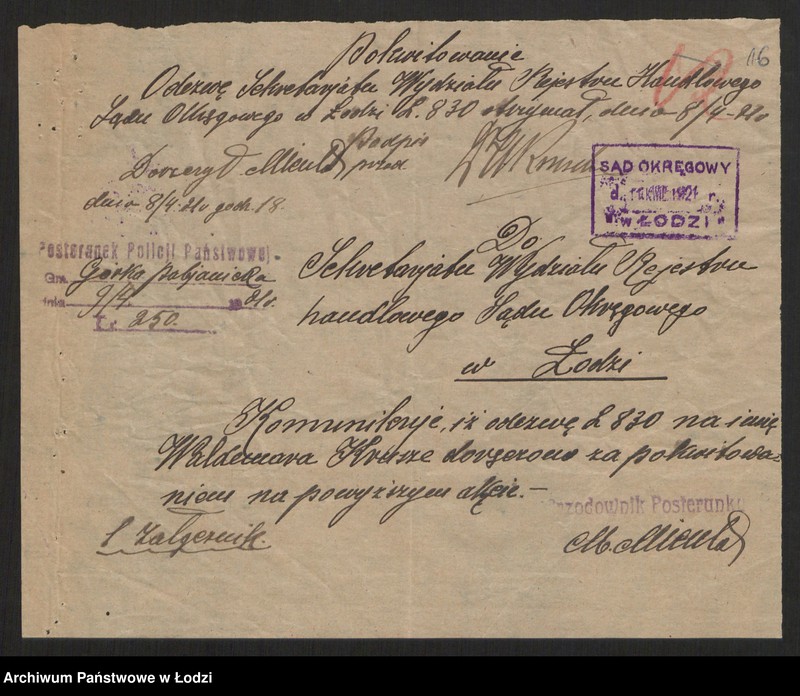 16
Pokwitowanie
Odezwę Sekretarjatu Wydziału Rejestru Handlowego
Sądu Okręgowego w Łodzi L. 830 otrzymał, dnia 8/4-21r
Podpis
Doręczył M. Micuła przod.
dnia 8/4 21r godz. 18.
SĄD OKRĘGOWY
d. 11 KWIE 1921 r.
w ŁODZI
Posterunek Policji Państwowej
Gm. Górka Pabjanicka
dnia 9/4 1921r.
L. 250.
Do
Sekretarjatu Wydziału Rejestru
handlowego Sądu Okręgowego
w Łodzi
Komunikuję, iż odezwę L 830 na imię
Waldemara Krusze doręczono za pokwitowa-
niem na powyższym akcie.-
Przodownik Posterunku
1 Załącznik.